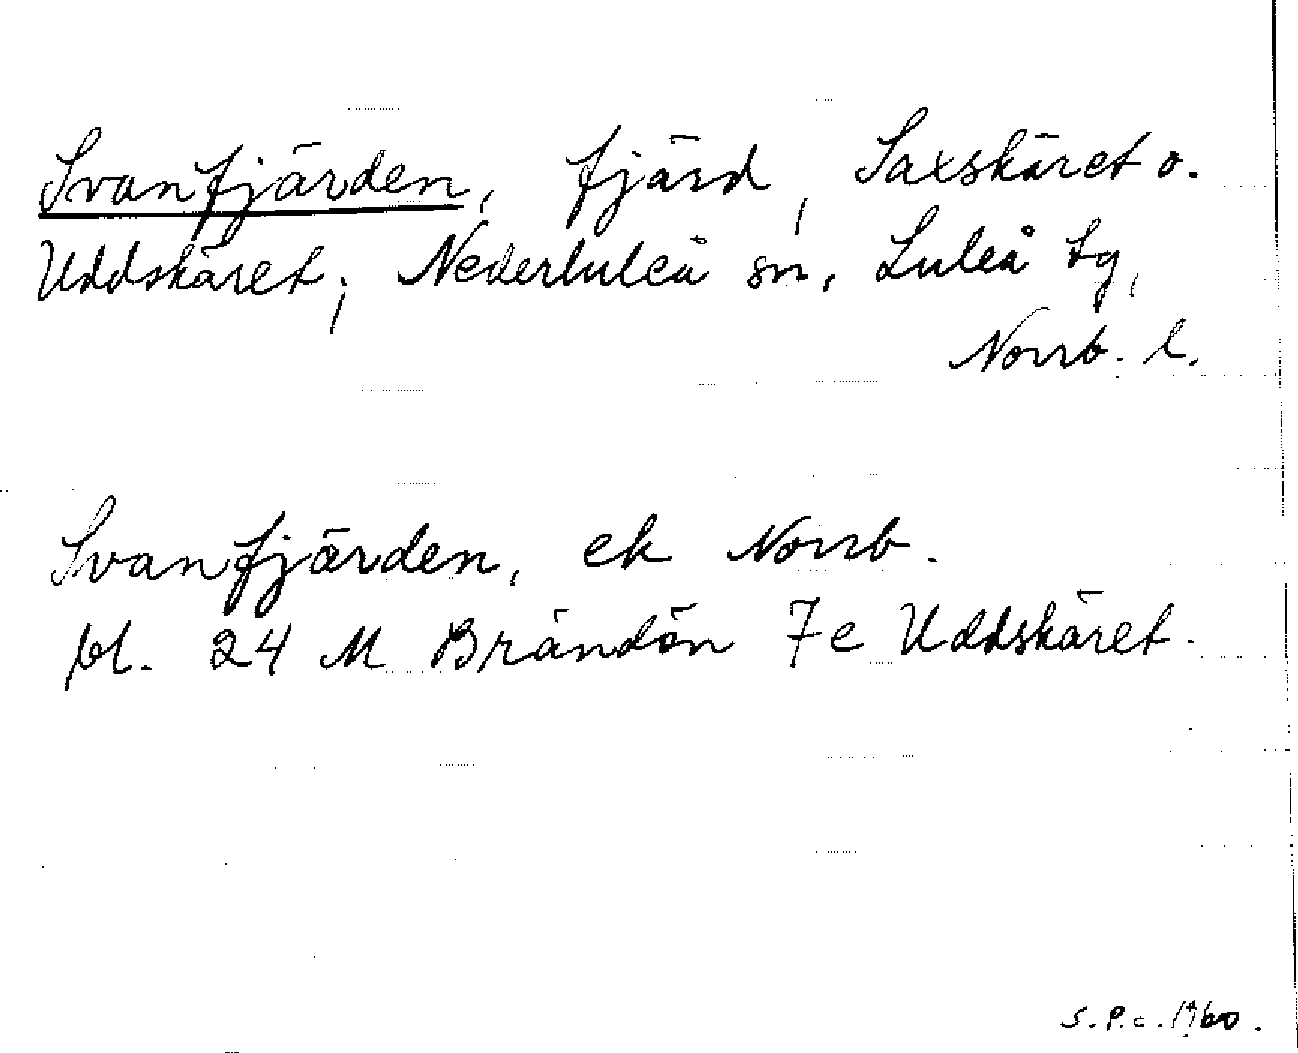 Svanfjärden, fjärd, Saxskäret o.
Uddskäret; Nederluleå sn, Luleå tg,
Norrb. l.
Svanfjärden, ek Norrb.
bl. 24 M Brändön 7e Uddskäret.
S.P.c. 1960.